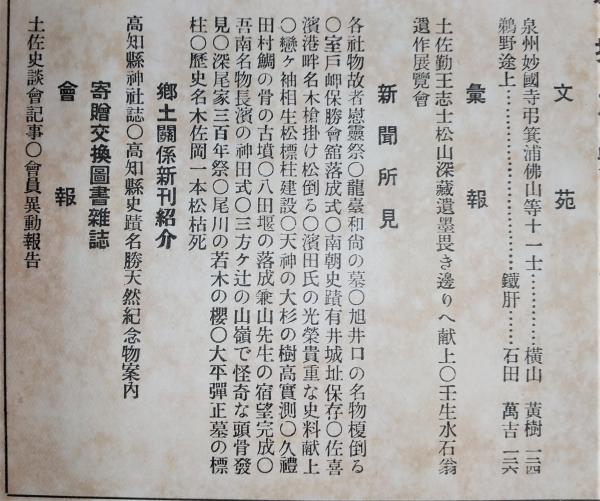 文苑
泉州妙國寺弔箕浦佛山等十一士…………横山 黄樹 一二四
鵜野途上……………………………鐵肝……石田 萬吉 一二六
彙報
土佐勤王志士松山深藏遺墨畏き邊りへ献上〇壬生水石翁
遺作展覽會
新聞所見
各社物故者慰靈祭〇龍臺和尚の墓〇旭井口の名物榎倒る
〇室戸岬保勝會舘落成式〇南朝史蹟有井城址保存〇佐喜
濱港畔名木槍掛け松倒る〇濱田氏の光榮貴重な史料献上
〇戀ヶ袖相生松標柱建設〇天神の大杉の樹高實測〇久禮
田村鯛の骨の古墳〇八田堰の落成兼山先生の宿望完成〇
吾南名物長濱の神田式〇三方ケ辻の山嶺で怪奇な頭骨發
見〇深尾家三百年祭〇尾川の若木の櫻〇大平彈正墓の標
柱〇歷史名木佐岡一本松枯死
鄕土關係新刊紹介
高知縣神社誌〇高知縣史蹟名勝天然紀念物案内
寄贈交換圖書雜誌
會報
土佐史談會記事〇會員異動報告